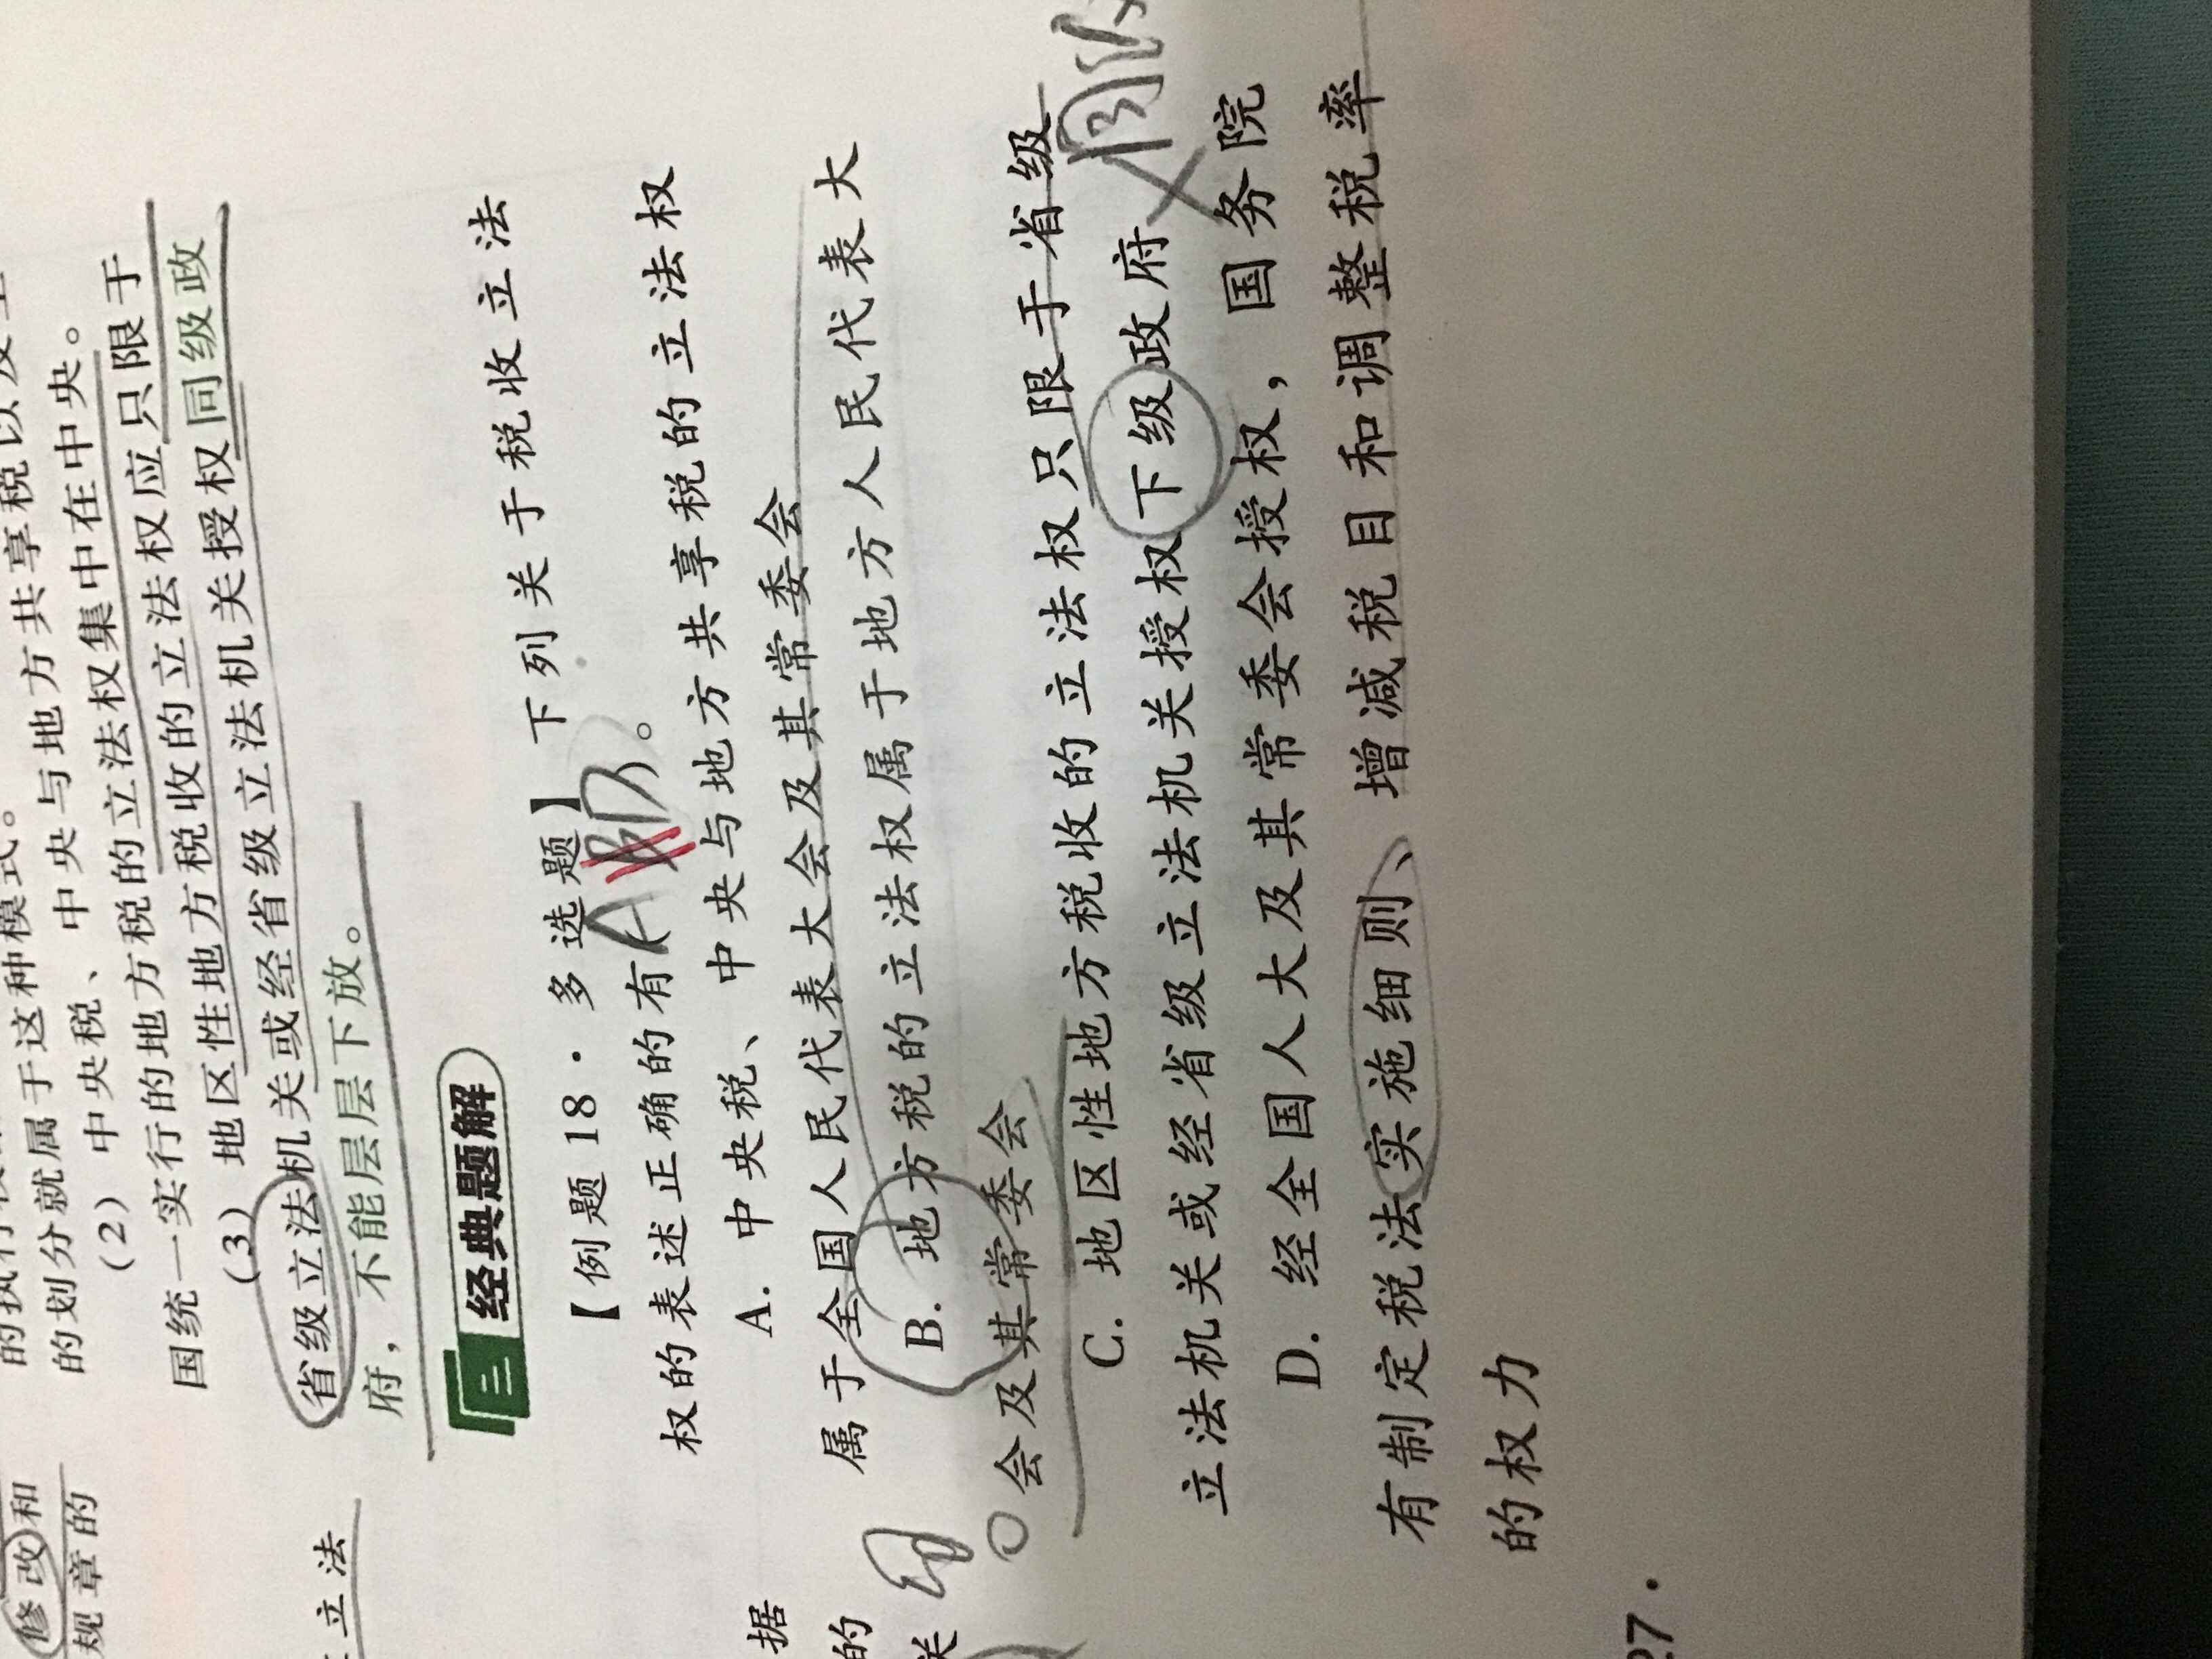 的划分就属于这种模式。
（2）中央税、中央与地方共享税以及全
国统一实行的地方税的立法权集中在中央。
（3）地区性地方税收的立法权应只限于
省级立法机关或经省级立法机关授权同级政
府，不能层层下放。
修改和
规章的
立法
经典题解
【例题 18·多选题】下列关于税收立法
权的表述正确的有ABD。
A. 中央税、中央与地方共享税的立法权
属于全国人民代表大会及其常委会
B. 地方税的立法权属于地方人民代表大
会及其常委会
C. 地区性地方税收的立法权只限于省级
立法机关或经省级立法机关授权下级政府
同级
D. 经全国人大及其常委会授权，国务院
有制定税法实施细则、增减税目和调整税率
的权力
据
的
27·